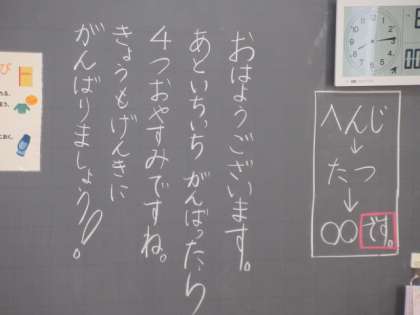 おはようございます。
あといちいちがんばったら
4つおやすみですね。
きょうもげんきに
がんばりましょう!。
へんじ
↓
たつ
↓
○○です。